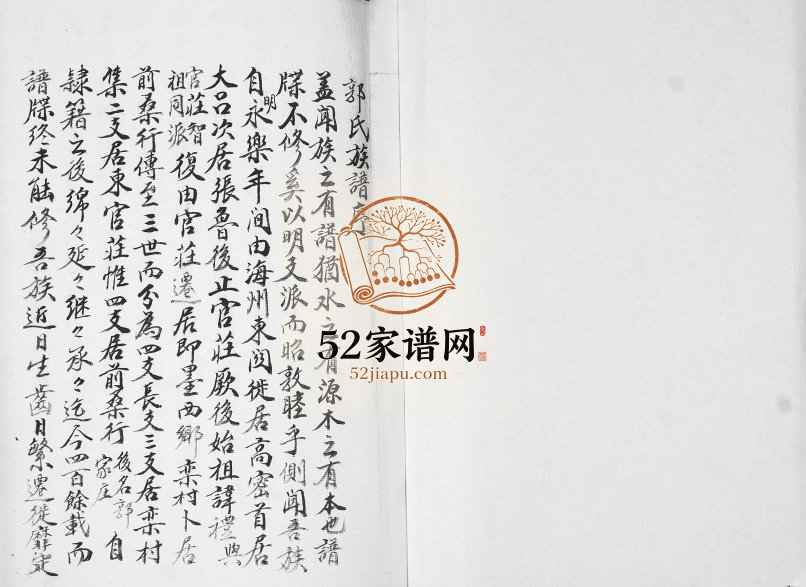 郭氏族譜序
盖闻族之有譜猶水之有源木之有本也譜
牒不修奚以明支派而昭敦睦乎側闻吾族
自明永樂年间由海州東関徙居高密首居
大吕次居張魯後止官莊厥後始祖諱禮與
官莊智祖同派復由官莊遷居即墨西鄉栾村卜居
前桑行傳至三世而分為四支長支三支居栾村
集二支居東官莊惟四支居前桑行後名郭家庄自
隸籍之後綿々延々継々承々迄今四百餘載而
譜牒終未能修吾族近日生齒日繁遷徙靡定
52家谱网
52jiapu.com